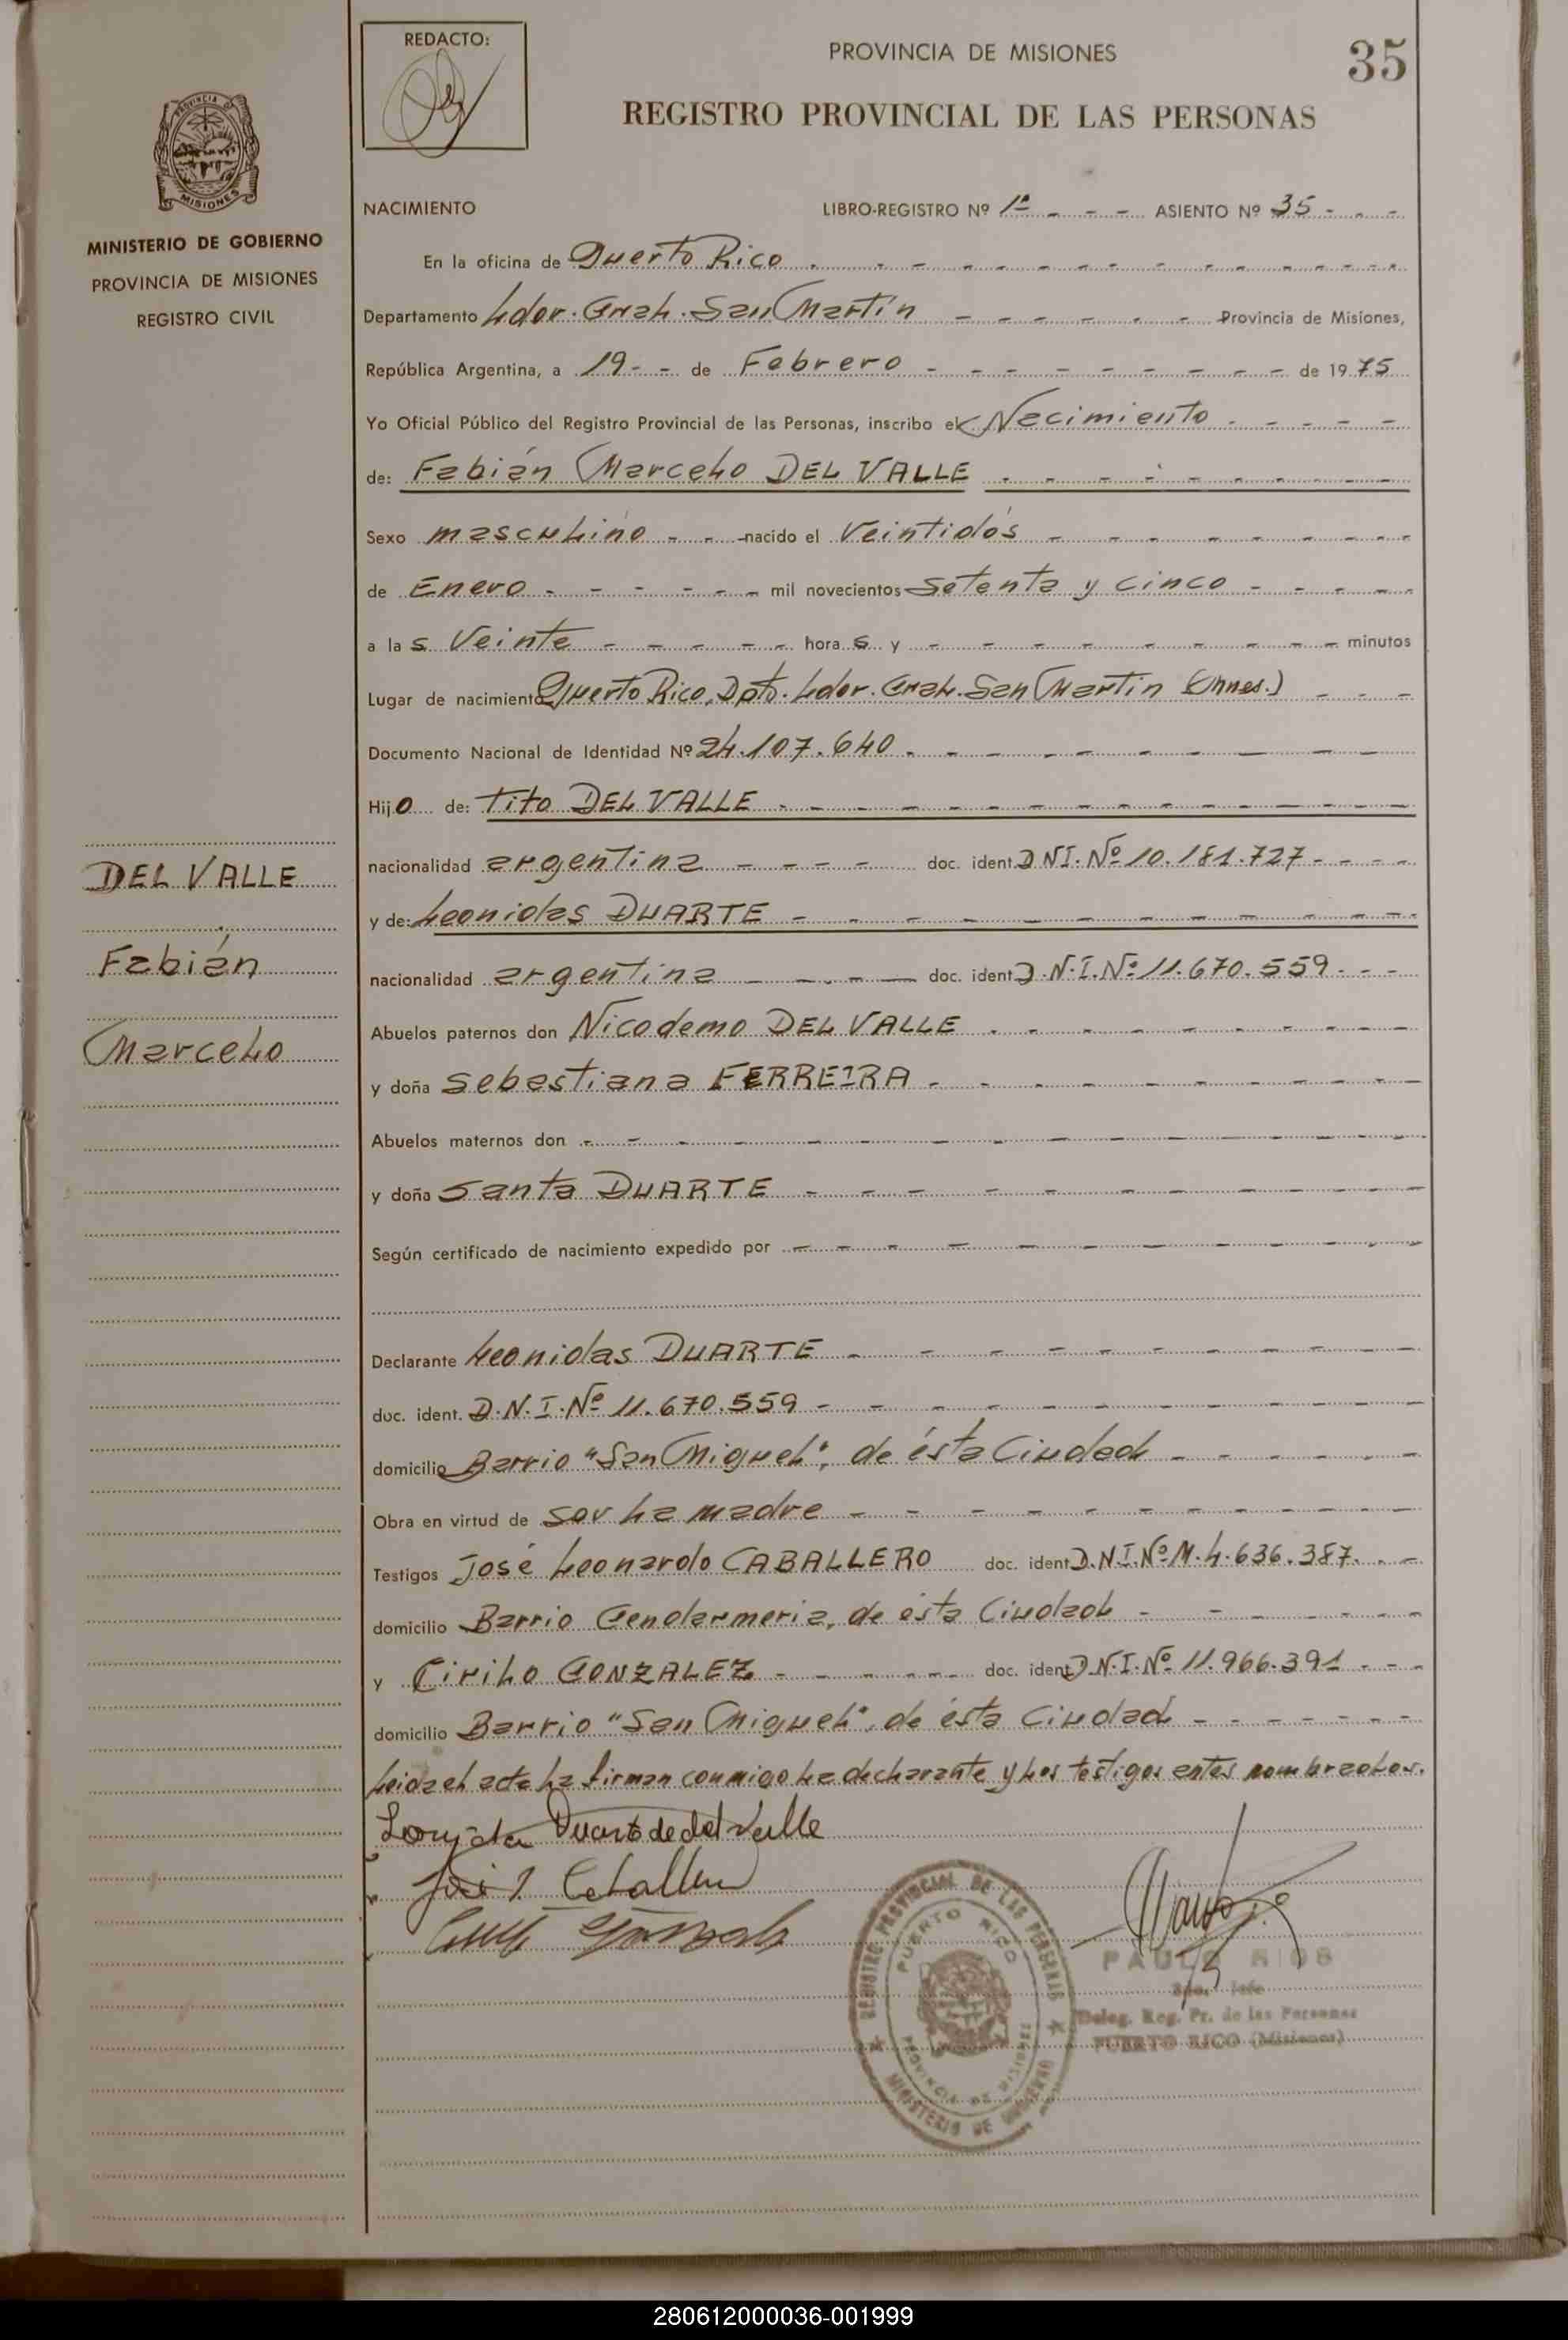 REDACTO:
PROVINCIA DE MISIONES
35
REGISTRO PROVINCIAL DE LAS PERSONAS
MISIONES
MINISTERIO DE GOBIERNO
PROVINCIA DE MISIONES
REGISTRO CIVIL
NACIMIENTO LIBRO-REGISTRO Nº 1º - - - ASIENTO Nº 35 - - -
En la oficina de Puerto Rico
Departamento Ldor. Gral. San Martín Provincia de Misiones,
República Argentina, a 19 - - de Febrero de 1975
Yo Oficial Público del Registro Provincial de las Personas, inscribo el Nacimiento
de: Fabián Marcelo DEL VALLE
Sexo masculino nacido el Veintidós
de Enero mil novecientos Setenta y cinco
a las Veinte horas y minutos
Lugar de nacimiento Puerto Rico, Dpto. Ldor. Gral. San Martín (Mnes.)
Documento Nacional de Identidad Nº 24.107.640
Hijo de: Tito DEL VALLE
nacionalidad argentina doc. ident. D.N.I. Nº 10.181.727
y de: Leonidas DUARTE
nacionalidad argentina doc. ident. D.N.I. Nº 11.670.559
Abuelos paternos don Nicodemo DEL VALLE
y doña Sebastiana FERREIRA
Abuelos maternos don
y doña Santa DUARTE
Según certificado de nacimiento expedido por
Declarante Leonidas DUARTE
doc. ident. D.N.I. Nº 11.670.559
domicilio Barrio "San Miguel", de ésta Ciudad
Obra en virtud de ser la madre
Testigos José Leonardo CABALLERO doc. ident. D.N.I. Nº M.4.636.387
domicilio Barrio Gendarmeria, de ésta Ciudad
y Cirilo GONZALEZ doc. ident. D.N.I. Nº 11.966.391
domicilio Barrio "San Miguel", de ésta Ciudad
Leida el acta la firman conmigo la declarante y los testigos antes nombrados.
Duarte de del Valle
DEL VALLE
Fabián
Marcelo
REGISTRO PROVINCIAL DE LAS PERSONAS
PUERTO RICO
PROVINCIA DE MISIONES
MINISTERIO DE GOBIERNO
Deleg. Reg. Pr. de las Personas
PUERTO RICO (Misiones)
280612000036-001999